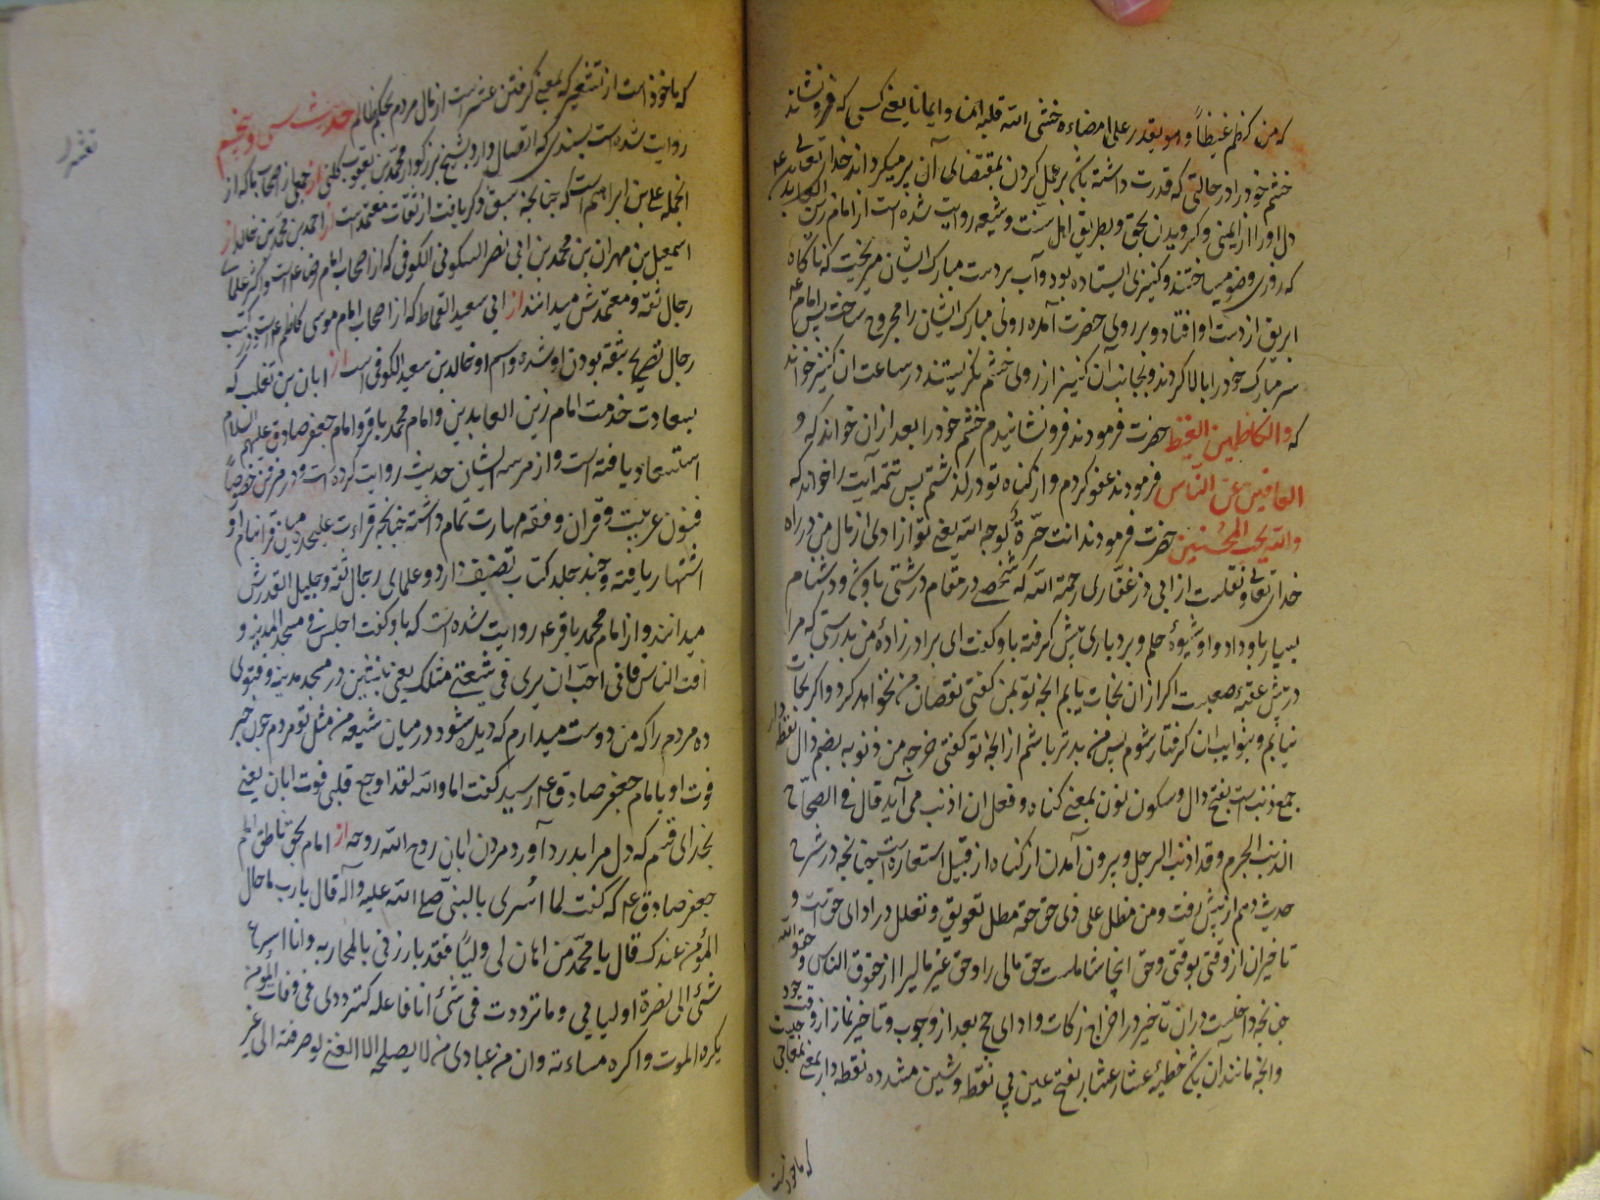 که من کظم غیظاً و هو یقدر علی امضاءه حشی الله قلبه امنا و ایمانا یعنی کسی که فرو نشاند
خشم خود را در حالتی که قدرت داشته باشد بر عمل کردن بمقتضای آن پر میکرداند خدای تعالی
دل او را از ایمنی و کرویدن بحق و بطریق اهل سنت و شیعه روایت شده است از امام زین العابدین ع
که روزی وضو میساختند و کنیزی ایستاده بود و آب بر دست مبارک ایشان میریخت که ناکاه
ابریق از دست او افتاد و بر روی حضرت آمده روی مبارک ایشان را مجروح ساخت پس امام ع
سر مبارک خود را بالا کردند و بجانب آن کنیز از روی خشم نکریستند در ساعت ان کنیز خواند
که والکاظمین الغیظ حضرت فرمودند فرو نشانیدم خشم خود را بعد از ان خواند که و
العافین عن النّاس فرمودند عفو کردم و از کناه تو در کذشتم پس تتمه آیت را خواند که
والله یحب المحسنین حضرت فرمودند انت حرّة لوجه الله یعنی تو ازادی از مال من در راه
خدای تعالی و نقلست از ابی ذر غفاری رحمة الله که شخصی در مقام درشتی با وی و دشنام
بسیار باو داد و او شیوهٔ حلم و بردباری پیش کرفته باو کفت ای برادر زادهٔ من بدرستی که مرا
در پیش عقبهٔ صعبیست اکر از ان نجات یابم انچه تو بمن کفتی نقصان من نخواهد کرد و اکر نجات
نیابم و بنوایب ان کرفتار شوم پس من بدتر باشم از انچه تو کفتی خرج من ذنوبه بضم ذال نقطه دار
جمع ذنب است بفتح ذال و سکون نون بمعنی کناه و فعل ان اذنب می آید قال فی الصحاح
الذنب الجرم و قد اذنب الرجل و بیرون آمدن از کناه از قبیل استعاره است چنانچه در شرح
حدیث دهم از پیش رفت و من مطل علی ذی حق حقه مطل تعویق و تعلل در ادای حق است و
تاخیر ان از وقتی بوقتی و حق اینجا شاملست حق مالی را و حق غیر مالی را از حقوق الناس و حقوق الله
چنانچه داخلست در ان تاخیر در اخراج زکات و ادای حج بعد از وجوب و تاخیر نماز از وقت خود
و انچه مانند آن باشد خطیئه عشار عشار بفتح عین بی نقطه و شین مشدده نقطه دار بمعنی
که ماخوذ است
که ماخوذ است از تعشیر که بمعنی کرفتن عشر است از مال مردم بحکم ظالم حدیث سی و پنجم
روایت شده است بسندی که اتصال دارد بشیخ بزرکوار محمد بن یعقوب کلینی از جمعی از اصحاب ما که از
انجمله علی بن ابراهیم است که چنانچه سبق ذکر یافت از ثقات معتمد است از احمد بن محمد بن خالد از
اسمعیل بن مهران بن محمد بن ابی نصر السکونی الکوفی که از اصحاب امام رضا ع است و اکثر علمای
رجال ثقه و معتمدش میدانند از ابی سعید القماط که از اصحاب امام موسی کاظم ع است و در کتب
رجال تصریح بثقه بودن او شده و اسم او خالد بن سعید الکوفی است از ابان بن تغلب که
بسعادت خدمت امام زین العابدین و امام محمد باقر و امام جعفر صادق علیهم السلام
استسعاد یافته است و از هر سه ایشان حدیث روایت کرده است و در هر فن خصوصاً
فنون عربیت و قران و فقه مهارت تمام داشته چنانچه قراءت علیحده میان قراء بنام او
اشتهار یافته و چند جلد کتاب تصنیف دارد و علمای رجال ثقه و جلیل القدرش
میدانند و از امام محمد باقر ع روایت شده است که باو کفت اجلس فی مسجد المدینه و
افت الناس فانی احبّ ان یری فی شیعتی مثلک یعنی بنشین در مسجد مدینه و فتوی
ده مردم را که من دوست میدارم که دیده شود در میان شیعه من مثل تو مردم چون خبر
فوت او بامام جعفر صادق ع رسید کفت اما والله لقد اوجع قلبی فوت ابان یعنی
بخدای قسم که دل مرا بدرد آورد مردن ابان روح الله روحه از امام بحق ناطق امام
جعفر صادق ع که کفت لما اسری بالنبی صلی الله علیه و آله قال یا رب ما حال
المؤمن عندک قال یا محمد من اهان لی ولیّاً فقد بارزنی بالمحاربه و انا اسرع
شئ الی نصرة اولیایی و ما ترددت فی شئ انا فاعله کترددی فی وفات المؤمن
یکره الموت و اکره مساءته و ان من عبادی من لا یصلحه الا الغنی لو صرفته الی غیر